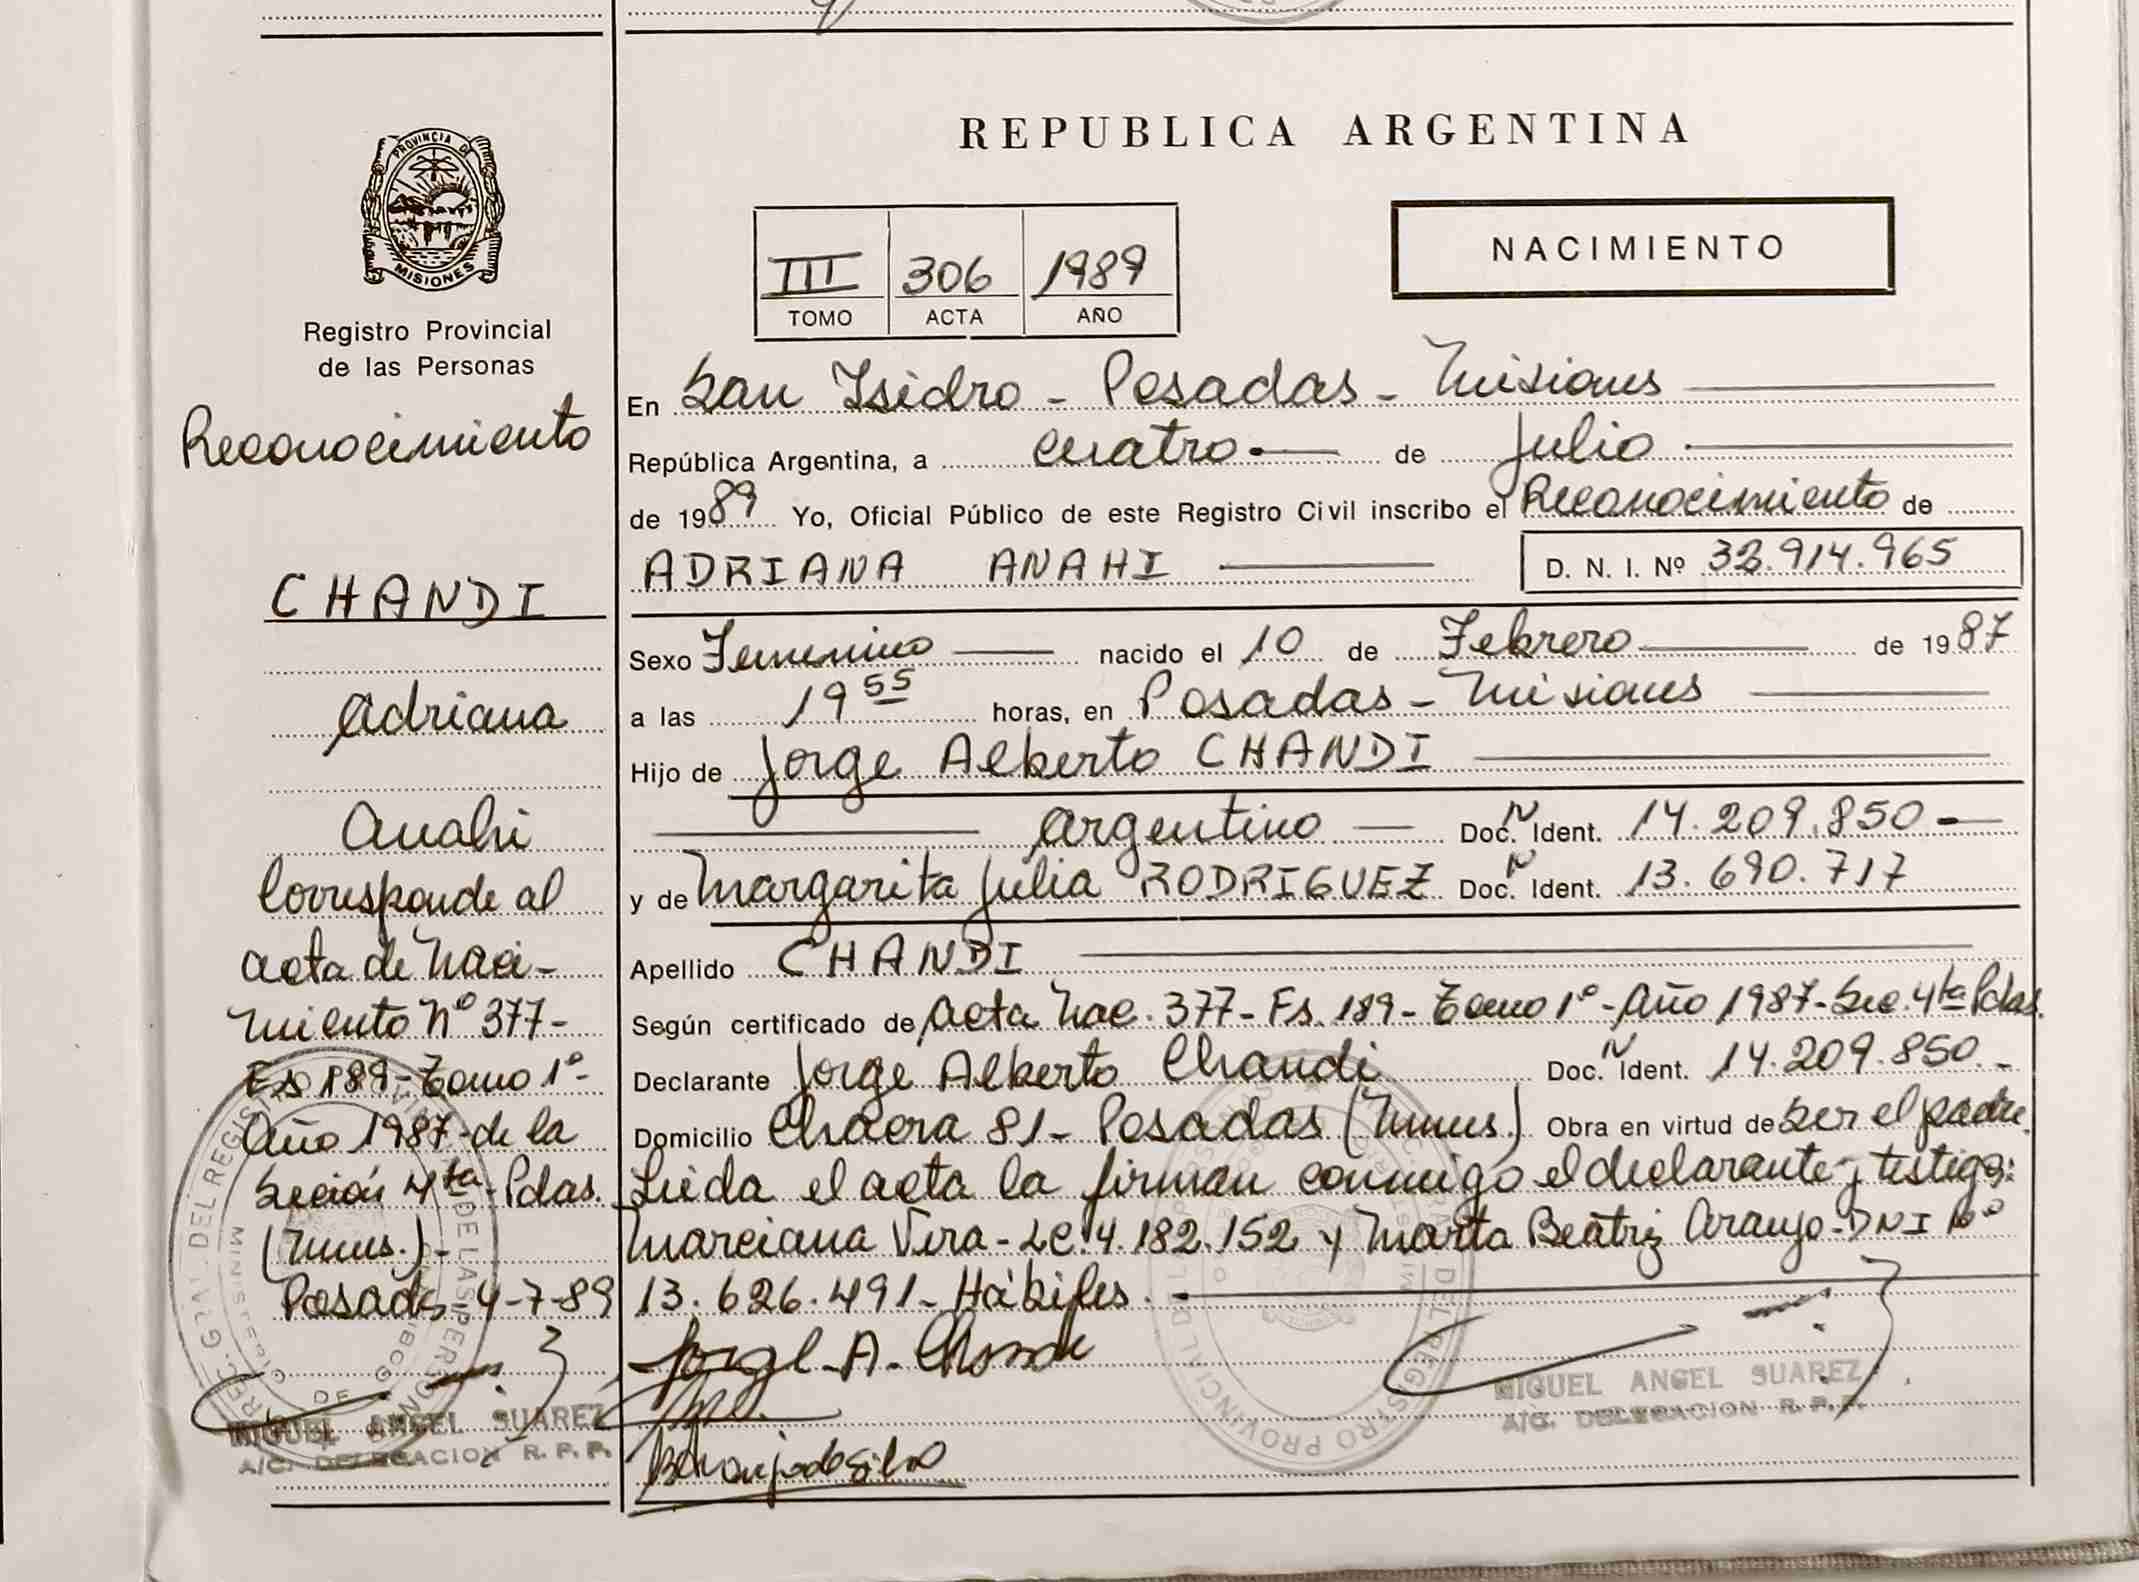 PROVINCIA DE
MISIONES
Registro Provincial
de las Personas
Reconocimiento
CHANDI
Adriana
Anahi
Corresponde al
acta de Naci-
miento Nº 377-
Fs 189-Tomo 1º-
Año 1987-de la
Seción 4ta-Pdas.
(Mnes.)-
Posadas 4-7-89
MIGUEL ANGEL SUAREZ
A/C. DELEGACION R. P. P.
REPUBLICA ARGENTINA
III 306 1989
TOMO ACTA AÑO
NACIMIENTO
En San Isidro - Posadas - Misiones
República Argentina, a cuatro de Julio
de 1989 Yo, Oficial Público de este Registro Civil inscribo el Reconocimiento de
ADRIANA ANAHI D. N. I. Nº 32.914.965
Sexo Femenino nacido el 10 de Febrero de 1987
a las 19 55 horas, en Posadas - Misiones
Hijo de Jorge Alberto CHANDI
argentino Doc. N Ident. 14.209.850
y de Margarita Julia RODRIGUEZ Doc. N Ident. 13.690.717
Apellido CHANDI
Según certificado de Acta Nac. 377- Fs. 189- Tomo 1º- Año 1987- Sec. 4ta Pdas.
Declarante Jorge Alberto Chandi Doc. N Ident. 14.209.850.-
Domicilio Chacra 81- Posadas (Mnes.) Obra en virtud de ser el padre.
Leída el acta la firman conmigo el declarante y testigos:
Marciana Vera - LC.4.182.152 y Marta Beatriz Araujo-DNI Nº
13.626.491- Hábiles.
Jorge A. Chandi
MIGUEL ANGEL SUAREZ
A/C. DELEGACION R. P. P.